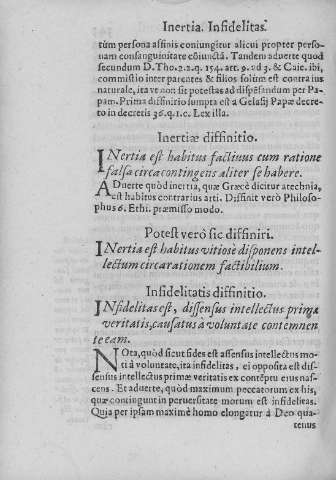 Inertia. Infidelitas.
tùm persona affinis coniungitur alicui propter perso-
nam consanguinitate cõiunctã. Tandem aduerte quòd
secundum D. Tho. 2.2. q. 154. art. 9. ad 3. & Caie. ibi,
commistio inter parentes & filios solùm est contra ius
naturale, ita ve non sit potestas ad dispẽsandum per Pa-
pam. Prima diffinitio sumpta est à Gelasij Papæ decre-
to in decretis 36. q. 1. c. Lex illa.
Inertiæ diffinitio.
INertia est habitus factiuus cum ratione
falsa circa contingens aliter se habere.
ADuerte quòd inertia, quæ Græcè dicitur atechnia,
est habitus contrarius arti. Diffinit verò Philoso-
phus 6. Ethi. præmisso modo.
Potest verò sic diffiniri.
INertia est habitus vitiosè disponens intel-
lectum circa rationem factibilium.
Infidelitatis diffinitio.
INfidelitas est, dissensus intellectus primæ
veritatis, causatus a voluntate contemnen
te eam.
NOta, quòd sicut fides est assensus intellectus mo-
ti à voluntate, ita infidelitas, ei opposita est dis-
sensus intellectus primæ veritatis ex contẽptu eius nas-
cens. Et aduerte, quòd maximum peccatorum ex his,
quæ contingunt in peruersitate morum est infidelitas.
Quia per ipsam maximè homo elongatur à Deo qua-
tenus